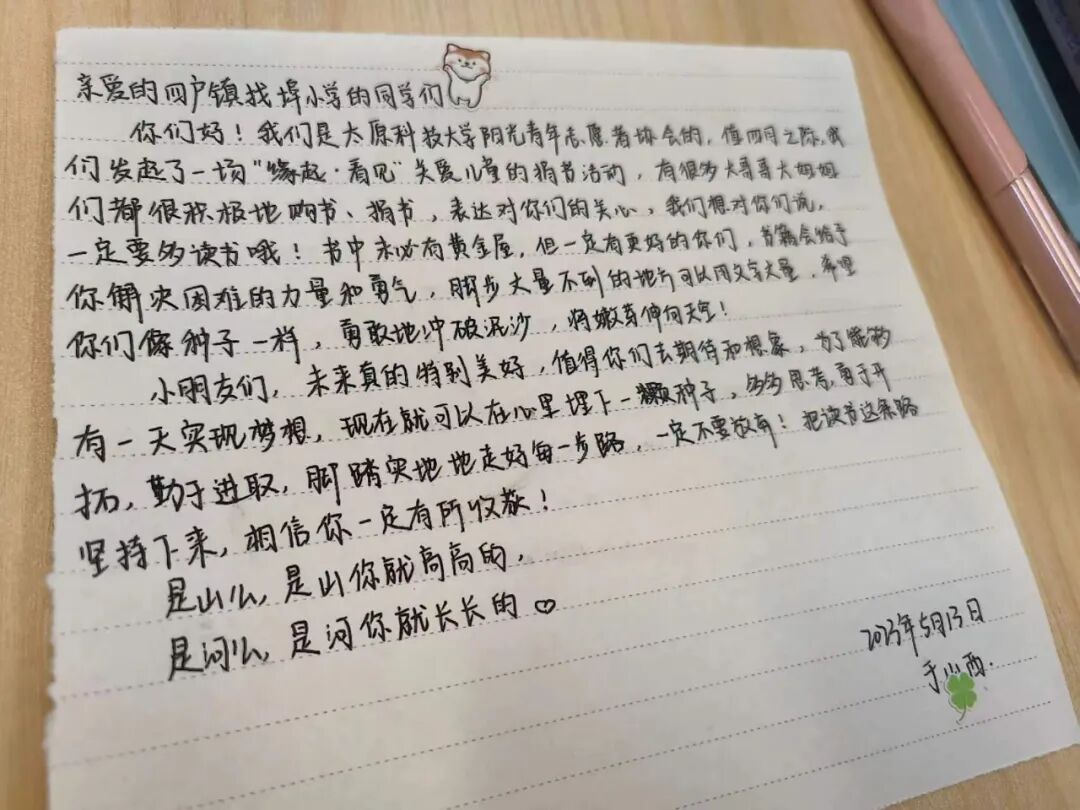 亲爱的四户镇找埠小学的同学们
你们好！我们是太原科技大学阳光青年志愿者协会的，值四月之际，我
们发起了一场“缘起·看见”关爱儿童的捐书活动，有很多大哥哥大姐姐
们都很积极地购书、捐书，表达对你们的关心，我们想对你们说，
一定要多读书哦！书中未必有黄金屋，但一定有更好的你们，书籍会给予
你解决困难的力量和勇气，脚步丈量不到的地方可以用文字丈量，希望
你们像种子一样，勇敢地冲破泥沙，将嫩芽伸向天空！
小朋友们，未来真的特别美好，值得你们去期待和想象，为了能够
有一天实现梦想，现在就可以在心里埋下一颗种子，多多思考，勇于开
拓，勤于进取，脚踏实地地走好每一步路，一定不要放弃！把读书这条路
坚持下来，相信你一定有所收获！
是山么，是山你就高高的，
是河么，是河你就长长的♡
2023年5月13日
于山西.